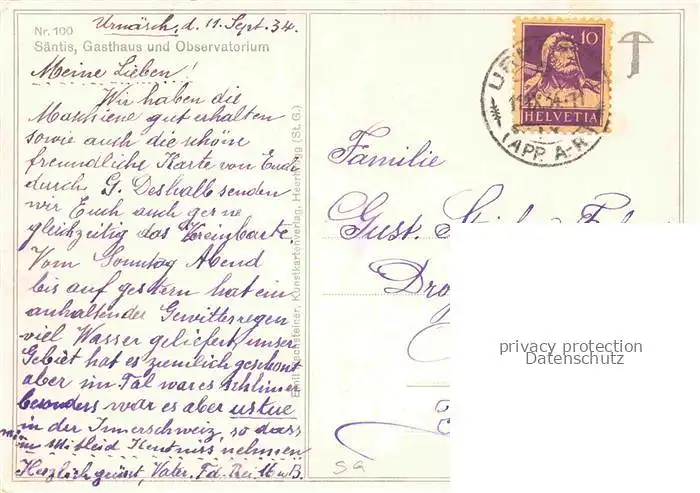 Urnäsch, d. 11. Sept. 34.
Nr. 100
Säntis, Gasthaus und Observatorium
Meine Lieben!
Wir haben die
Maschiene gut erhalten
sowie auch die schöne
freundliche Karte von Euch
durch G. Deshalb senden
wir Euch auch gerne
gleichzeitig das Vereinbarte.
Vom Sonntag Abend
bis auf gestern hat ein
anhaltender Gewitterregen
viel Wasser geliefert, unser
Gebiet hat es ziemlich geschont
aber im Tal war es schlimer
besonders war es aber
in der Innerschweiz, so dass
man Mitleid nehmen
Herzlich grüsst, Vater.
Emil Bachsteiner, Kunstkartenverlag, Heerbrugg (St. G.)
10
HELVETIA
(APP. A-R)
Familie
Gust.
Dro
privacy protection
Datenschutz
SG